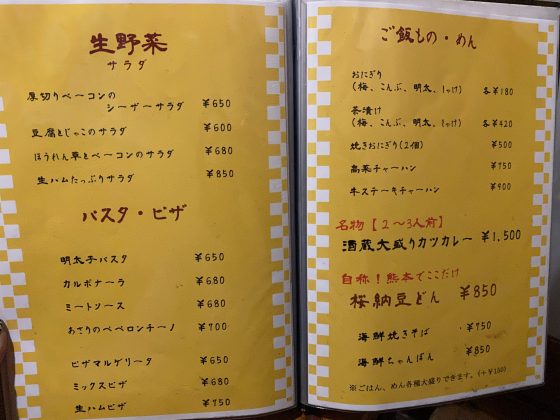 生野菜
サラダ
厚切りベーコンの
シーザーサラダ ￥650
豆腐とじゃこのサラダ ￥600
ほうれん草とベーコンのサラダ ￥680
生ハムたっぷりサラダ ￥850
パスタ・ピザ
明太子パスタ ￥650
カルボナーラ ￥680
ミートソース ￥680
あさりのペペロンチーノ ￥700
ピザマルゲリータ ￥650
ミックスピザ ￥680
生ハムピザ ￥750
ご飯もの・めん
おにぎり
(梅、こんぶ、明太、しゃけ) 各￥180
茶漬け
(梅、こんぶ、明太、しゃけ) 各￥420
焼きおにぎり(2個) ￥500
高菜チャーハン ￥750
牛ステーキチャーハン ￥900
名物【2～3人前】
酒蔵大盛りカツカレー ￥1,500
自称！熊本でここだけ
桜納豆どん ￥850
海鮮焼きそば ￥750
海鮮ちゃんぽん ￥850
※ごはん、めん各種大盛りできます。(+￥150)